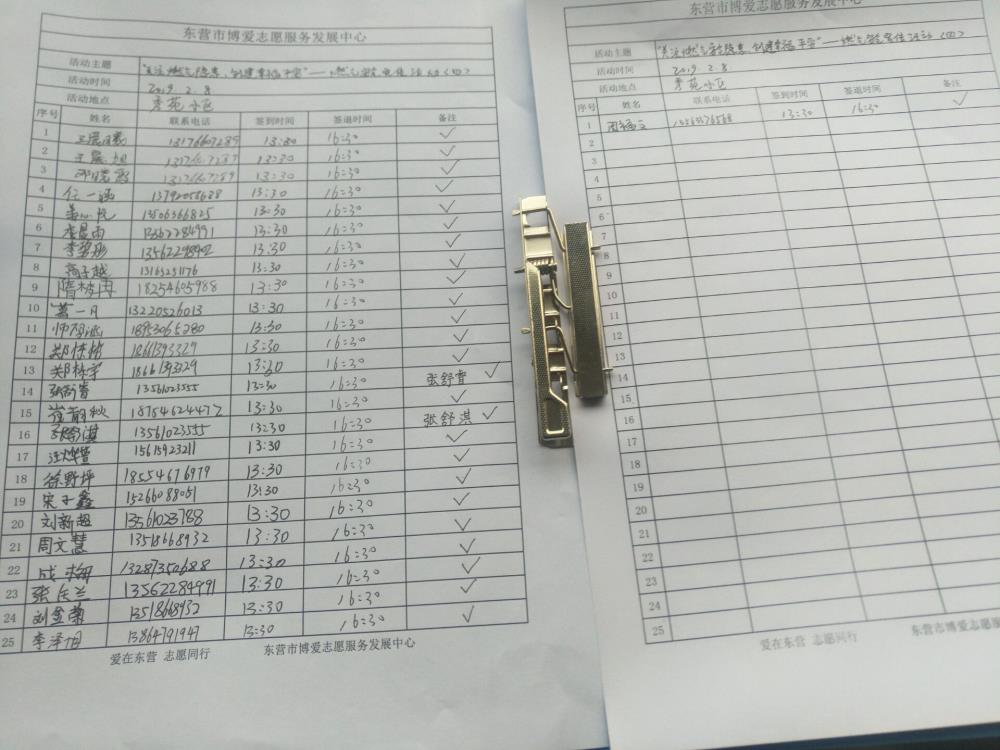 东营市博爱志愿服务发展中心
活动主题 "关注燃气隐患,创建幸福平安"——燃气安全宣传活动(四)
活动时间 2019.2.8
活动地点 秀苑小区
序号 姓名 联系电话 签到时间 签退时间 备注
1 13176607289 13:30 16:30 ✓
2 13:30 16:30 ✓
3 13:30 16:30 ✓
4 任一涵 13792058688 13:30 16:30 ✓
5 13506366825 13:30 16:30 ✓
6 李晨雨 13562284991 13:30 16:30 ✓
7 13562298902 13:30 16:30 ✓
8 高子越 13165251176 13:30 16:30 ✓
9 18254605988 13:30 16:30 ✓
10 13220526013 13:30 16:30 ✓
11 13:30 16:30 ✓
12 18661393329 13:30 16:30 ✓
13 13:30 16:30 ✓
14 张舒睿 13561023555 13:30 16:30 张舒睿 ✓
15 18754624472 13:30 16:30 ✓
16 张舒淇 13561023555 13:30 16:30 张舒淇 ✓
17 15615923211 13:30 16:30 ✓
18 徐野坪 18554676979 13:30 16:30 ✓
19 宋子鑫 15266088051 13:30 16:30 ✓
20 刘新超 13561023788 13:30 16:30 ✓
21 周文慧 13518668932 13:30 16:30 ✓
22 成梅 13287350688 13:30 16:30 ✓
23 张庆兰 13562284991 13:30 16:30 ✓
24 刘金菊 13518668932 13:30 16:30 ✓
25 李泽旭 13864791947 13:30 16:30 ✓
爱在东营 志愿同行 东营市博爱志愿服务发展中心
东营市博爱志愿服务发展中心
活动主题 "关注燃气安全隐患,创建幸福平安"——燃气安全宣传活动(四)
活动时间 2019.2.8
活动地点 秀苑小区
序号 姓名 联系电话 签到时间 签退时间 备注
1 13:30 16:30 ✓
2
3
4
5
6
7
8
9
10
11
12
13
14
15
16
17
18
19
20
21
22
23
24
25
爱在东营 志愿同行 东营市博爱志愿服